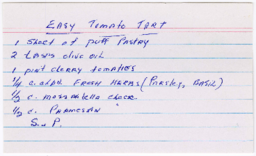 EASY Tomato TART
1 Sheet of puff Pastry
2 TABLS olive oil
1 pint cherry tomatoes
1/4 c. FRESH HERBS (PARSLEY, BASIL)
1/2 c. mozzarella
1/2 c. PARMESAN
S and P.